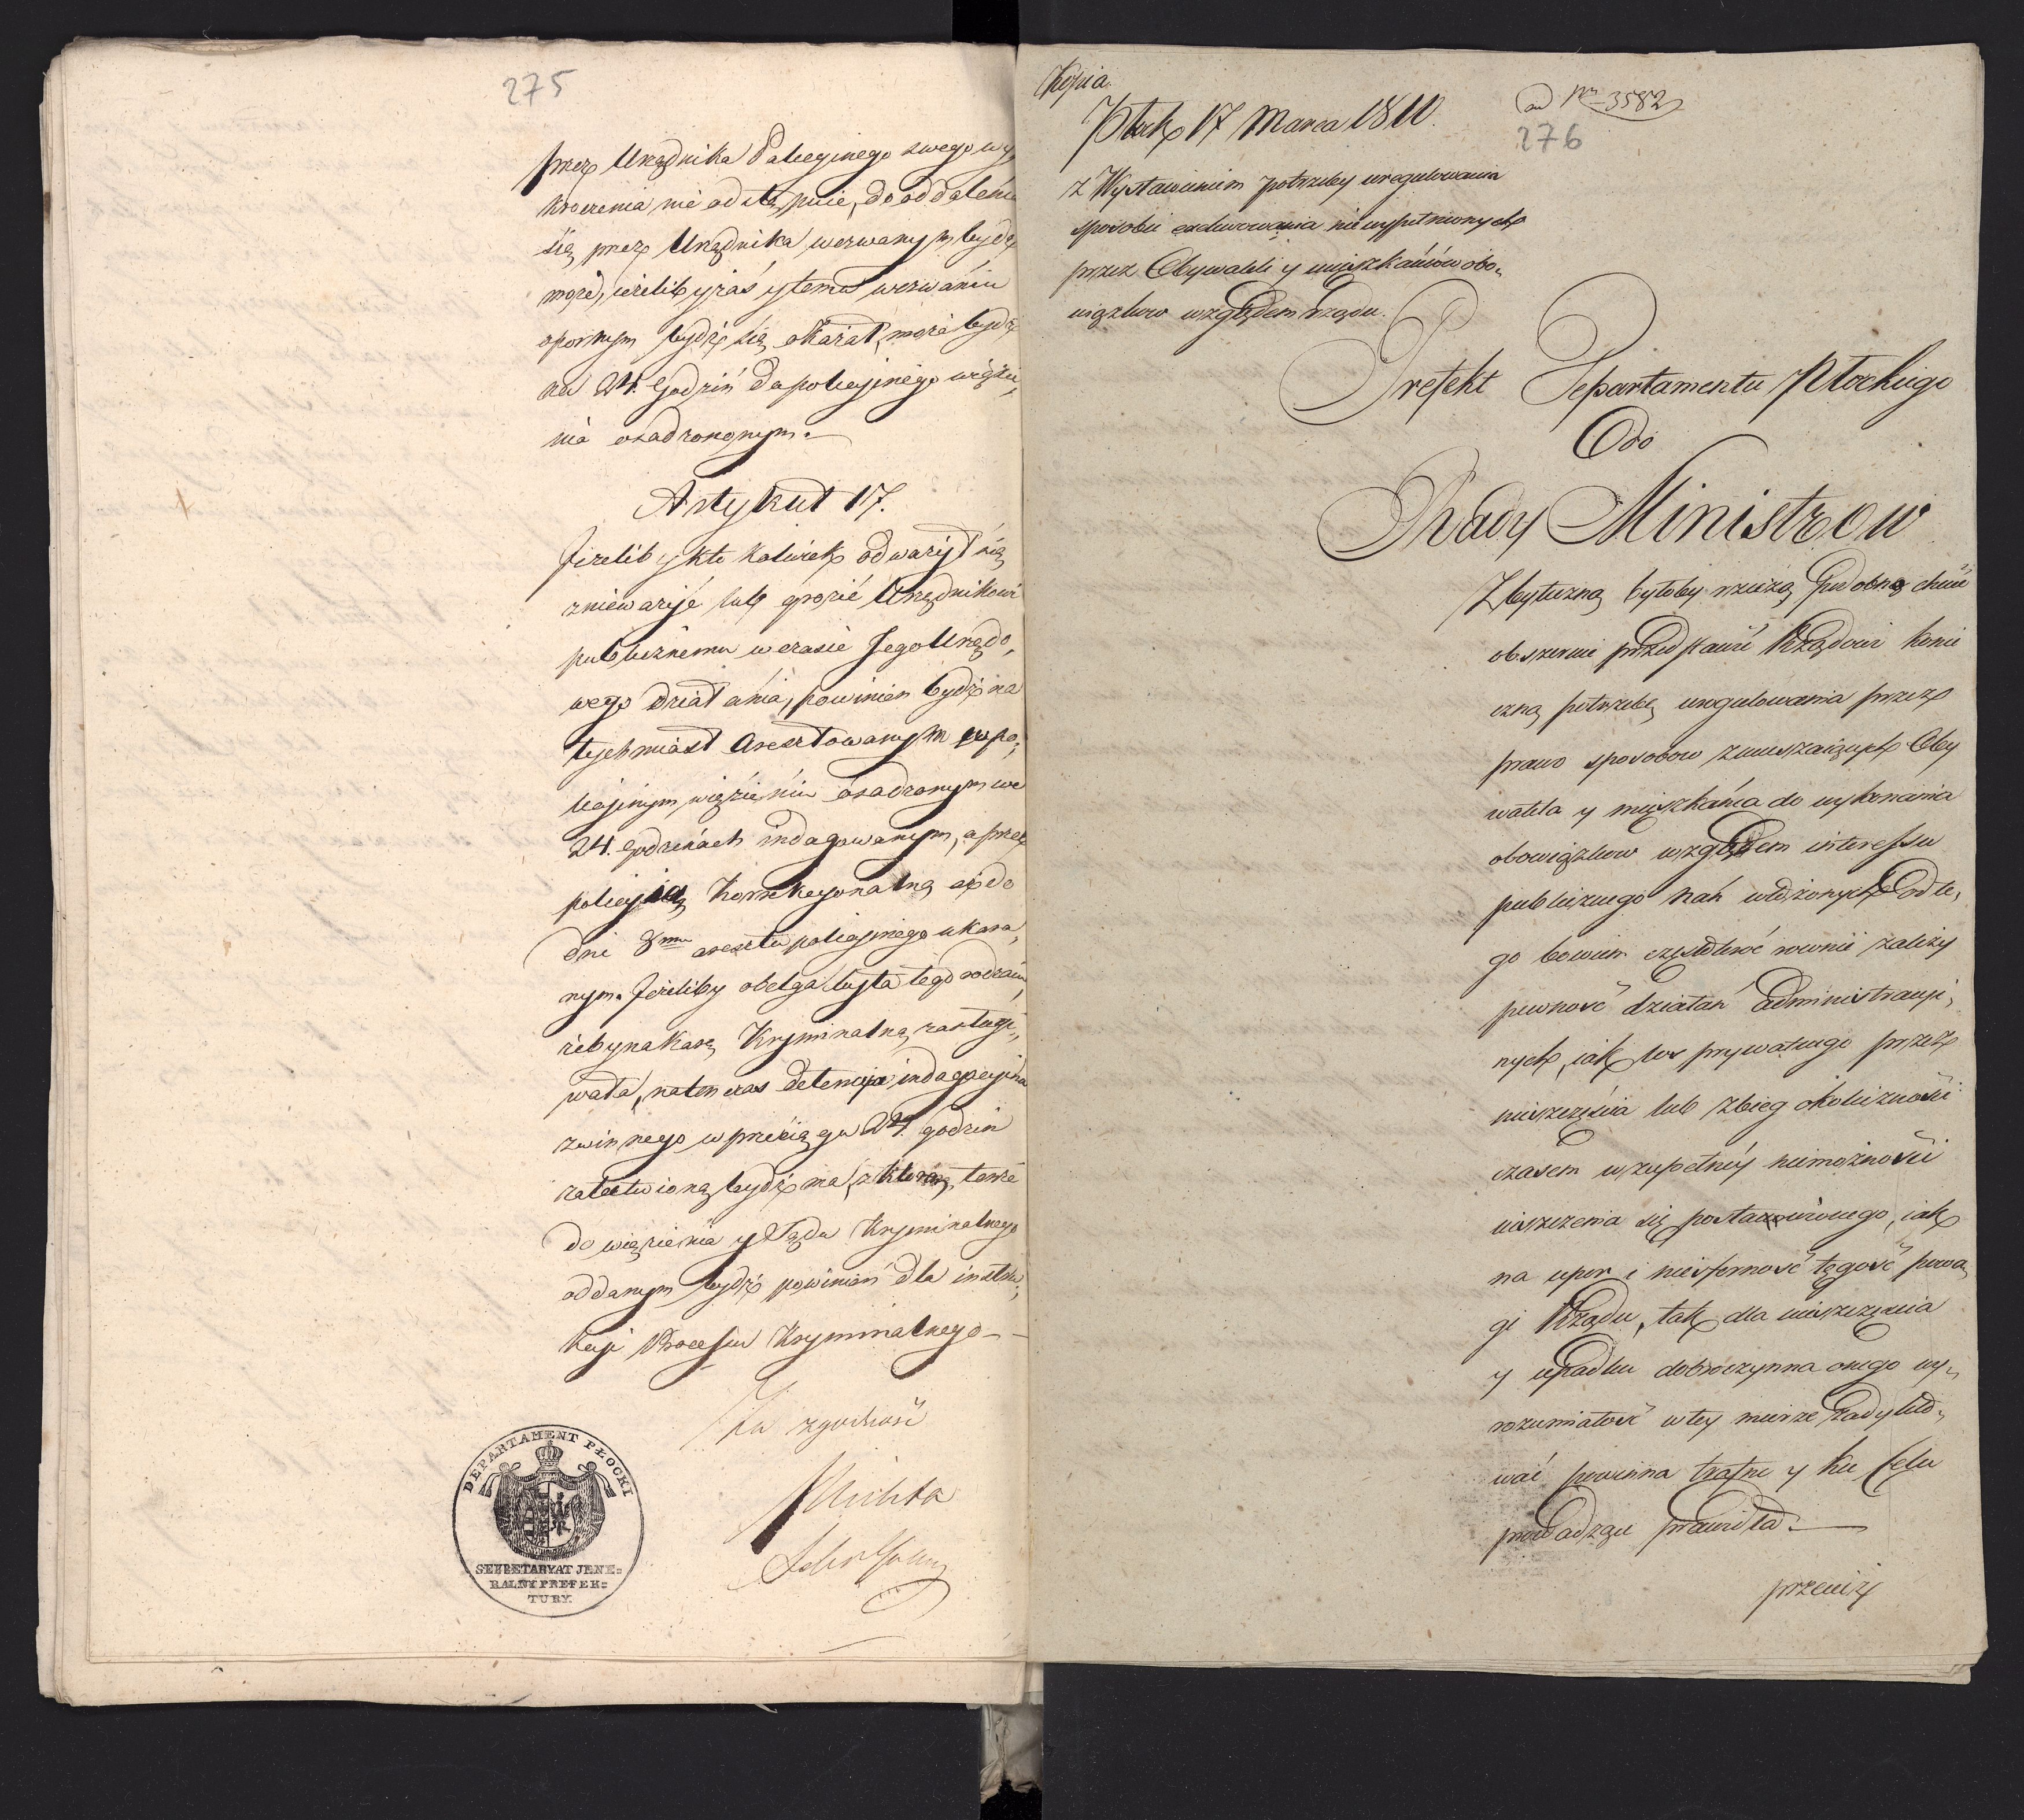 275
przez Urzędnika Policyjnego swego wy,
kroczenia nie odstąpuie, do oddalenia
się przez Urzędnika wezwanym bydz
może, ieżeliby zaś y temu wezwaniu
opornym bydź się okazał, może bydź
na 24. Godzin do policyjnego więzie,
nia osadzonym.
Artykuł 17.
Jeżeliby kto kolwiek odważył się
znieważyć lub grozić Urzędnikowi
publicznemu w czasie Jego Urzędo,
wego działania, powinien bydź na
tychmiast Aresztowanym w po,
licyjnym więzieniu osadzonym we
24. godzinach indagowanym, a przez
policyią Korrekcyonalną aż do
dni 8miu aresztu policyjnego ukara,
nym. Jeżeliby obelga była tego rodzaiu,
żeby na Karę Kryminalną zasługi,
wała, natenczas detencyia indagacyjna
z winnego w przeciągu 24. godzin
załatwioną bydź ma, z którą tenże
do więzienia y Sądu Kryminalnego
oddanym bydź powinien dla instru,
kcyi Processu Kryminalnego
Za zgodność
DEPARTAMENT PŁOCKI
SEKRETARYAT JENE=
RALNY PREFEK=
TURY.
Kopia
ad Nr 3582
276
Płock 17 Marca 1810.
Z Wystawieniem potrzeby uregulowania
sposobu exekwowania niewypełnionych
przez Obywateli y mieszkańców obo,
wiązkow względem Rządu.
Prefekt Departamentu Płockiego
Do
Rady Ministrow
Zbyteczną byłoby rzeczą podobno chcieć
obszernie przedstawić Rządowi konie
czną potrzebę uregulowania przez
prawo sposobow zmuszaiących Oby
watela y mieszkańca do wykonania
obowiązkow względem interessu
publicznego nań włożonych. Od te,
go bowiem częstokroć rownie zależy
pewność działań Administracyi,
nych, iak los prywatnego przez
nieszczęścia lub zbieg okoliczności
czasem w zupełney niemożności
uiszczenia się postawionego, iak
na upor i niesforność tęgość powa,
gi Rządu, tak dla nieszczęścia
y upadku dobroczynna onego wy,
rozumiałość w tey mierze Zadykto,
wać powinna trafne y ku Celu
prowadzące prawidła.